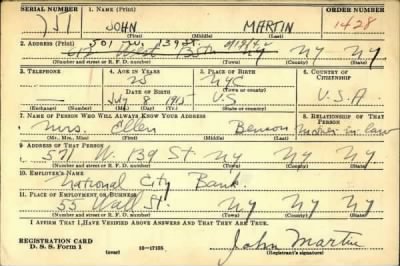 SERIAL NUMBER 1. NAME (Print) ORDER NUMBER
751 JOHN MARTIN 1428
(First) (Middle) (Last)
2. ADDRESS (Print) 501 W. 139 St.
NY NY NY
(Number and street or R. F. D. number) (Town) (County) (State)
3. TELEPHONE 4. AGE IN YEARS 5. PLACE OF BIRTH 6. COUNTRY OF CITIZENSHIP
25 NYC
DATE OF BIRTH (Town or county)
July 8 1915 U.S U.S.A.
(Exchange) (Number) (Mo.) (Day) (Yr.) (State or country)
7. NAME OF PERSON WHO WILL ALWAYS KNOW YOUR ADDRESS 8. RELATIONSHIP OF THAT PERSON
Mrs. Ellen Benson mother in law
(Mr., Mrs., Miss) (First) (Middle) (Last)
9. ADDRESS OF THAT PERSON
W. 139 St. NY NY NY
(Number and street or R. F. D. number) (Town) (County) (State)
10. EMPLOYER'S NAME
National City Bank.
11. PLACE OF EMPLOYMENT OR BUSINESS
55 Wall St. NY NY NY
(Number and street or R. F. D. number) (Town) (County) (State)
I AFFIRM THAT I HAVE VERIFIED ABOVE ANSWERS AND THAT THEY ARE TRUE.
REGISTRATION CARD
D. S. S. Form 1 16-17105 John Martin
(Registrant's signature)